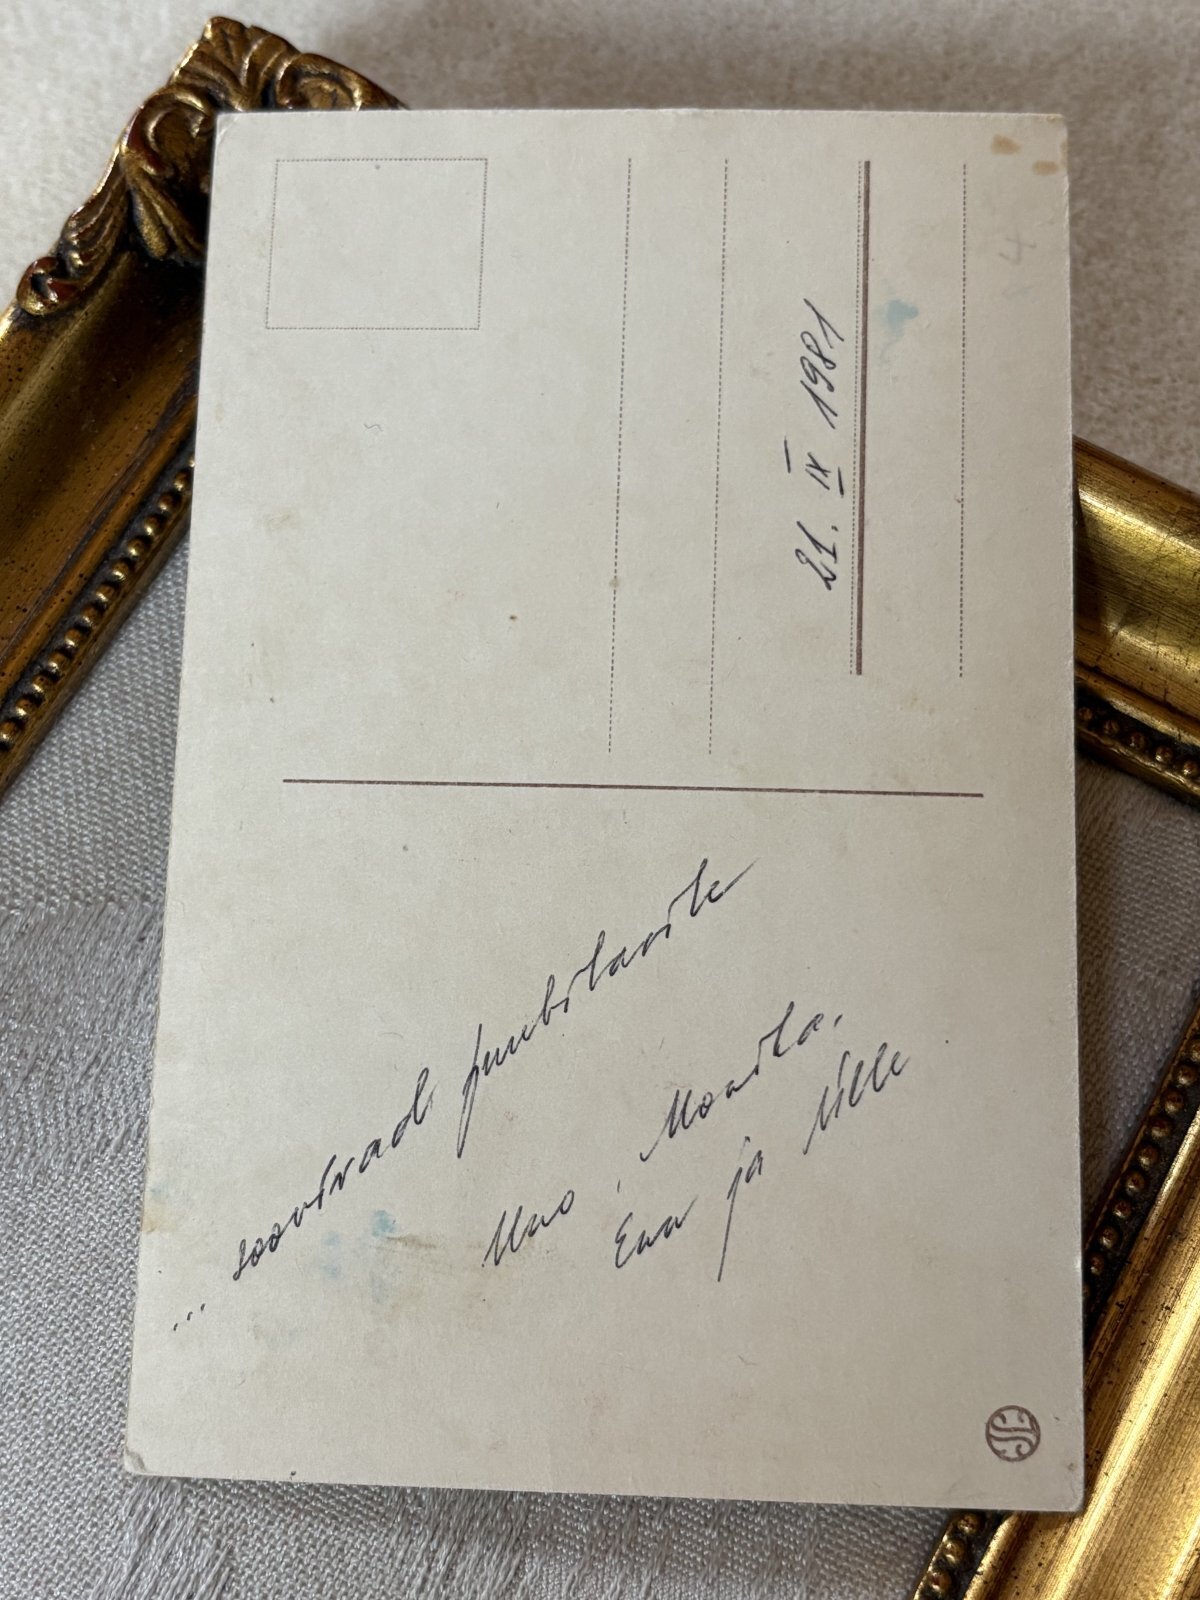 21. IX 1981
... soovivad juubilarile
Uno, Maila,
Eve ja Ülle
4